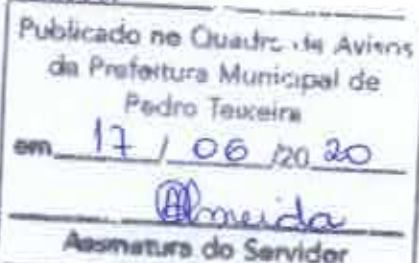 Publicado no Quadro de Avisos
da Prefeitura Municipal de
Pedro Teixeira
em 17 / 06 /20 20
Almeida
Assinatura do Servidor